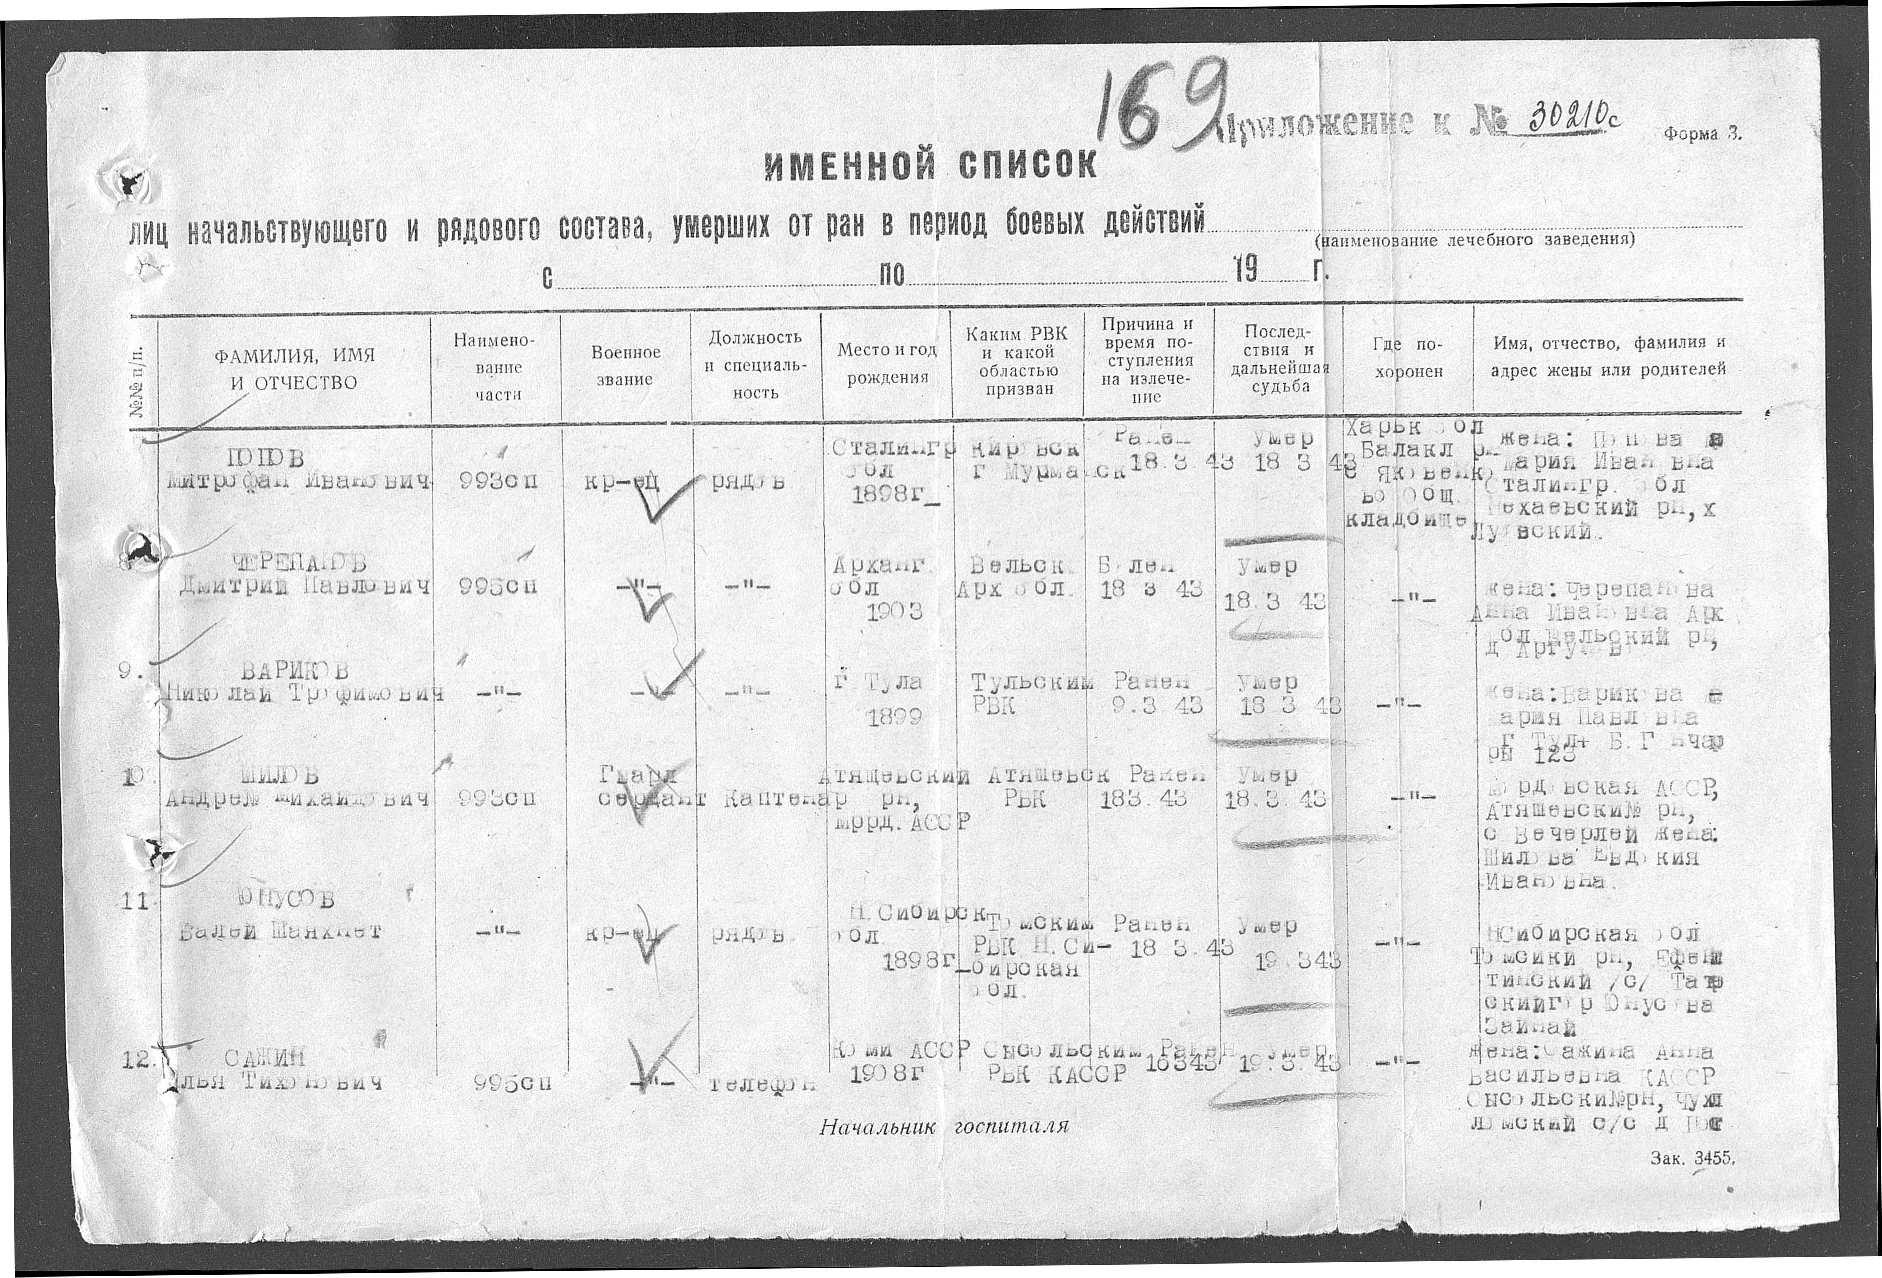 169
Приложение к № 30210с
Форма 3.
ИМЕННОЙ СПИСОК
лиц начальствующего и рядового состава, умерших от ран в период боевых действий
(наименование лечебного заведения)
с по 19 г.
№№ п/п.
ФАМИЛИЯ, ИМЯ
И ОТЧЕСТВО
Наимено-
вание
части
Военное
звание
Должность
и специаль-
ность
Место и год
рождения
Каким РВК
и какой
областью
призван
Причина и
время по-
ступления
на излече-
ние
Послед-
ствия и
дальнейшая
судьба
Где по-
хоронен
Имя, отчество, фамилия и
адрес жены или родителей
ПОПОВ
Митрофан Иванович
993сп
кр-ец
рядов
Сталингр
обл
1898г_
Кировск
г Мурманск
Ранен
18.3 43
Умер
18 3 43
Харьк обл
Балакл рн
с Яковенко
во Общ.
кладбище
жена: Попова
мария Ивановна
Сталингр. обл
рн, х
8
ЧЕРЕПАНОВ
Дмитрий Павлович
995сп
-"-
-"-
Арханг.
обл
1903
Вельск.
Арх обл.
Болен
18 3 43
Умер
18.3 43
-"-
жена: Черепанова
Анна Ивановна Арх
обл Вельский рн,
9.
ВАРИКОВ
Николай Трофимович
-"-
-"-
-"-
г Тула
1899
Тульским
РВК
Ранен
9.3 43
Умер
18 3 43
-"-
жена: Варикова
мария Павловна
123
10
ШИЛОВ
Андрей Михайлович
993сп
Гвард
сержант
Каптенар
Атяшевский
рн,
мррд. АССР
Атяшевск
РВК
Ранен
183.43
Умер
18.3.43
-"-
Мордовская АССР,
Атяшевски№ рн,
с Вечерлей жена:
Шилова Евдокия
Ивановна.
11.
ЮНУСОВ
Валей Шаяхмет
-"-
кр-ец
рядов.
Н.Сибирск
обл
1898г_
Томским
РВК Н.Си-
бирская
обл.
Ранен
18 3.43
Умер
19.343
-"-
НСибирская обл
рн,
тинский /с/
Юнусова
Зайнай
12.
САЖИН
Илья Тихонович
995сп
-"-
телефон
Коми АССР
1908г
Сысольским
РВК КАССР
Ранен
16343
умер
19.3.43
-"-
Жена: Сажина Анна
Васильевна КАССР
Сысольски№рн,
с/с д
Начальник госпиталя
Зак. 3455.